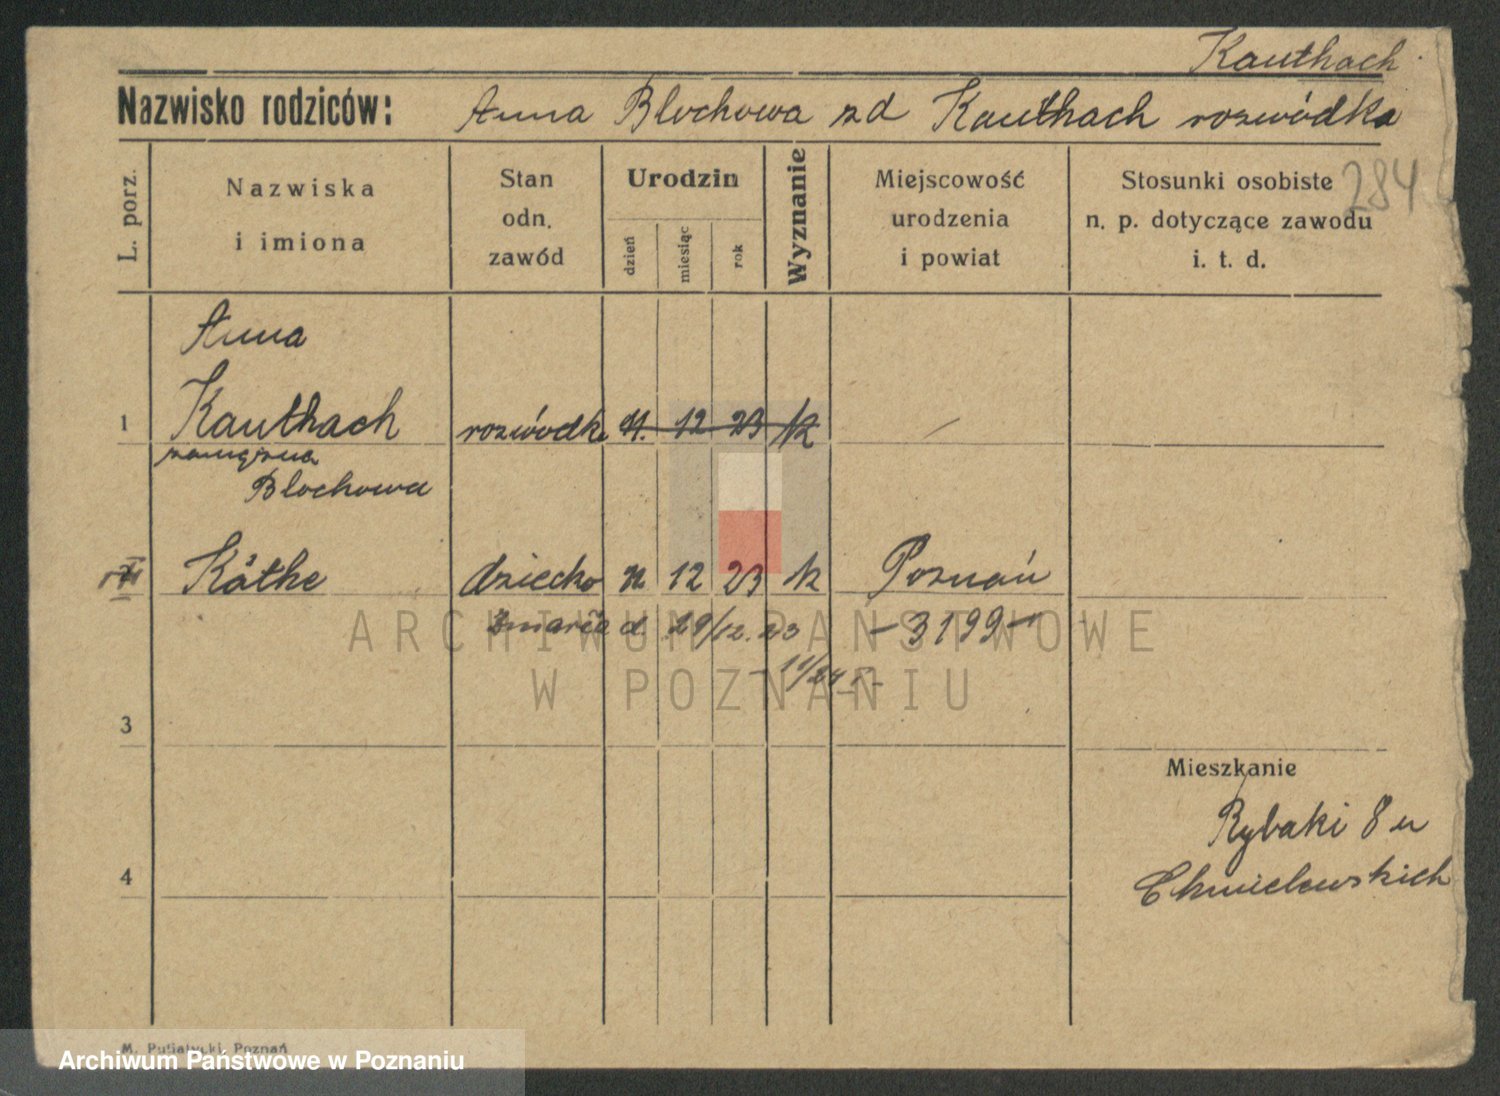 Kauthach
Nazwisko rodziców: Anna Blochowa zd Kauthach rozwódka
L. porz.
Nazwiska
i imiona
Stan
odn.
zawód
Urodzin
dzień
miesiąc
rok
Wyznanie
Miejscowość
urodzenia
i powiat
Stosunki osobiste
n. p. dotyczące zawodu
i. t. d.
284
Anna
1 Kauthach rozwódka 11. 12 23 k
zamężna
Blochowa
Käthe dziecko 11 12 23 k Poznań
zmarła d. 29/12. 23 - 3199 -
3
Mieszkanie
Rybaki 8 u
4 Chmielewskich
M. Putiatycki, Poznań
ARCHIWUM PAŃSTWOWE
W POZNANIU
Archiwum Państwowe w Poznaniu